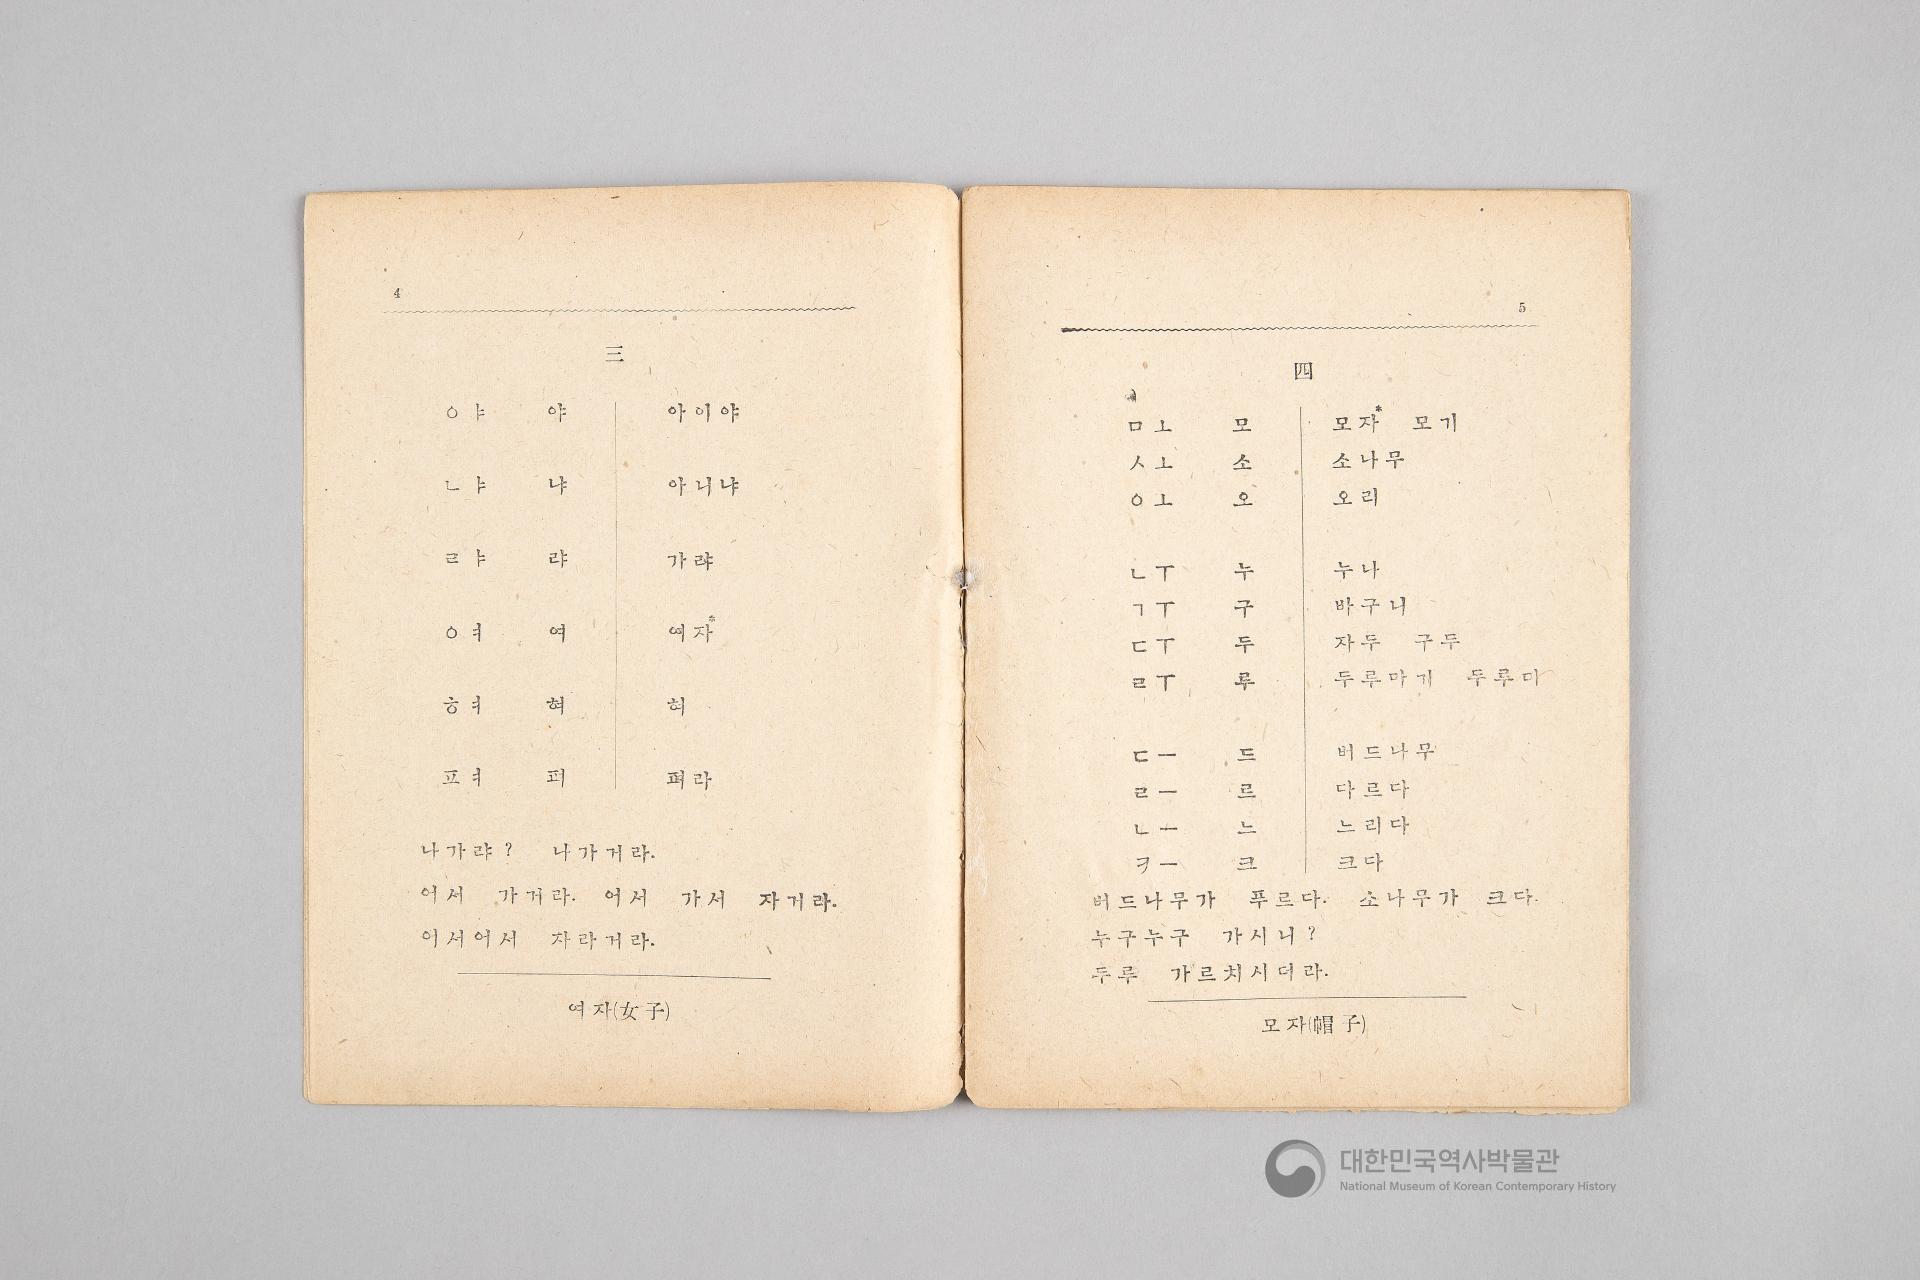 4
三
ㅇㅑ 야 아이야
ㄴㅑ 냐 아니냐
ㄹㅑ 랴 가랴
ㅇㅕ 여 여자*
ㅎㅕ 혀 혀
ㅍㅕ 펴 펴라
나가랴? 나가거라.
어서 가거라. 어서 가서 자거라.
어서어서 자라거라.
여자(女子)
5
四
ㅁㅗ 모 모자* 모기
ㅅㅗ 소 소나무
ㅇㅗ 오 오리
ㄴㅜ 누 누나
ㄱㅜ 구 바구니
ㄷㅜ 두 자두 구두
ㄹㅜ 루 두루마기 두루미
ㄷㅡ 드 버드나무
ㄹㅡ 르 다르다
ㄴㅡ 느 느리다
ㅋㅡ 크 크다
버드나무가 푸르다. 소나무가 크다.
누구누구 가시니?
두루 가르치시더라.
모자(帽子)
대한민국역사박물관
National Museum of Korean Contemporary History